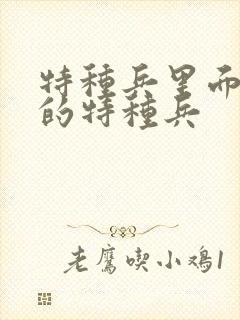 特種兵里而
的特種兵
老鷹喫小鸡1